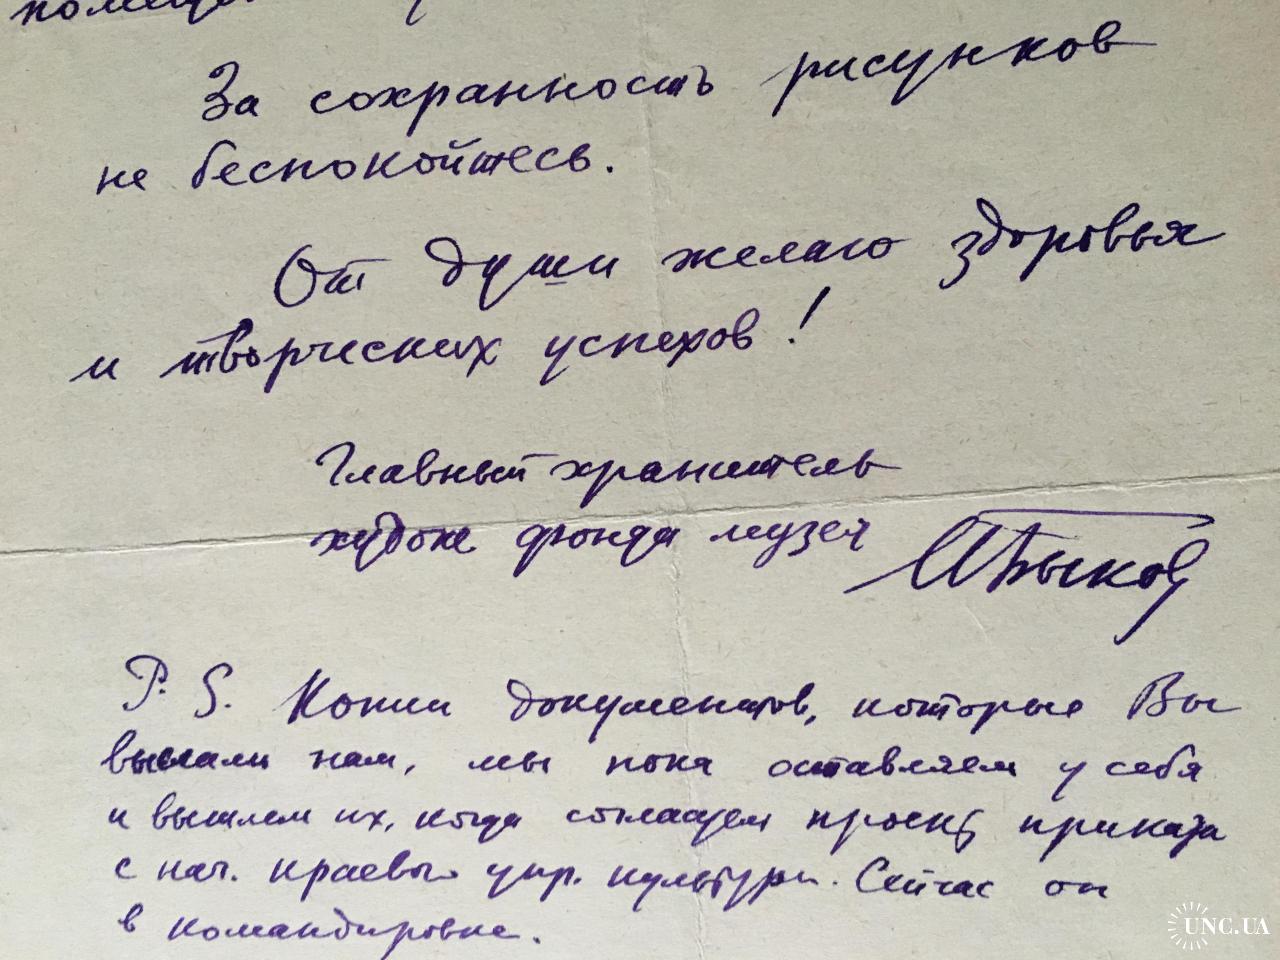 За сохранность рисунков
не беспокойтесь.
От души желаю здоровья
и творческих успехов!
Главный хранитель
худож фонда музея
Быков
P.S. Копии документов, которые Вы
выслали нам, мы пока оставляем у себя
и вышлем их, когда согласуем проект приказа
с нач. краевым упр. культуры. Сейчас он
в командировке.
UNC.UA